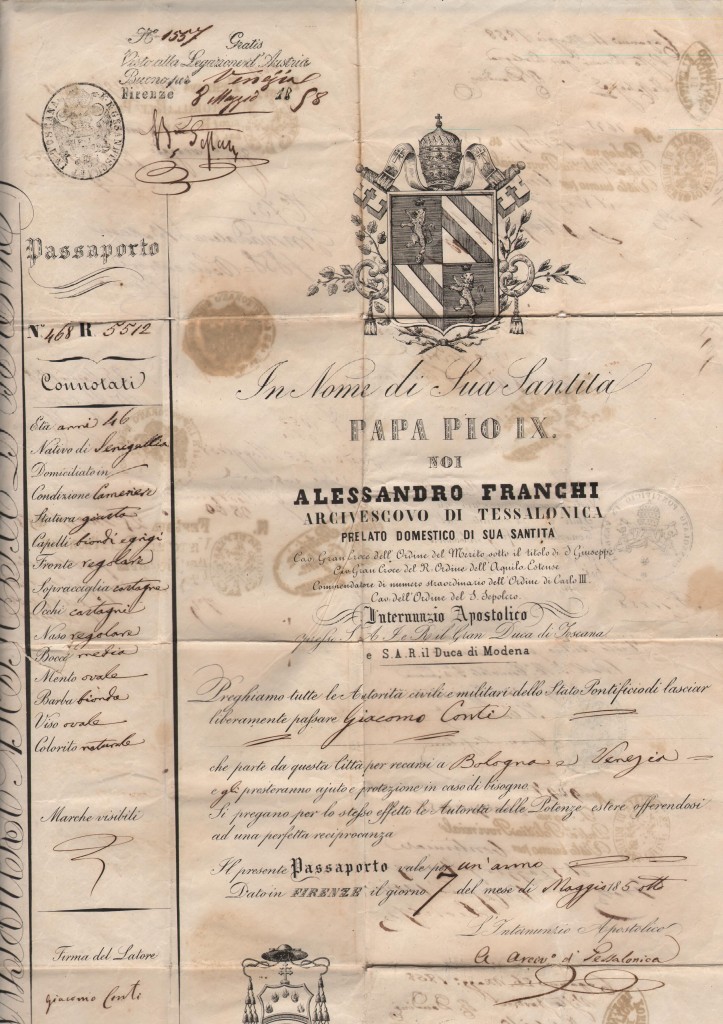 No. 1557 Gratis
Visto alla Legazione d'Austria
Buono per Venezia
Firenze 8 Maggio 1858
Passaporto
N.º 468 R. 5512
Connotati
Età anni 46
Nativo di Senegallia
Domiciliato in
Condizione Cameriere
Statura giusta
Capelli biondi e grigi
Fronte regolare
Sopracciglia castagne
Occhi castagni
Naso regolare
Bocca media
Mento ovale
Barba bionda
Viso ovale
Colorito naturale
Marche visibili
Firma del Latore
Giacomo Conti
In Nome di Sua Santità
PAPA PIO IX.
NOI
ALESSANDRO FRANCHI
ARCIVESCOVO DI TESSALONICA
PRELATO DOMESTICO DI SUA SANTITÀ
Cav. Gran Croce dell'Ordine del Merito sotto il titolo di S. Giuseppe
Cav. Gran Croce del R. Ordine dell'Aquila Estense
Commendatore di numero straordinario dell'Ordine di Carlo III.
Cav. dell'Ordine del S. Sepolcro.
Internunzio Apostolico
presso S. A. I. e R. il Gran Duca di Toscana
e S.A.R. il Duca di Modena
Preghiamo tutte le Autorità civili e militari dello Stato Pontificio di lasciar
liberamente passare Giacomo Conti
che parte da questa Città per recarsi a Bologna e Venezia
e gli presteranno ajuto e protezione in caso di bisogno.
Si pregano per lo stesso effetto le Autorità delle Potenze estere offerendosi
ad una perfetta reciprocanza
Il presente Passaporto vale per un'anno
Dato in FIRENZE il giorno 7 del mese di Maggio 185 otto
L'Internunzio Apostolico
A. Arcivo. di Tessalonica